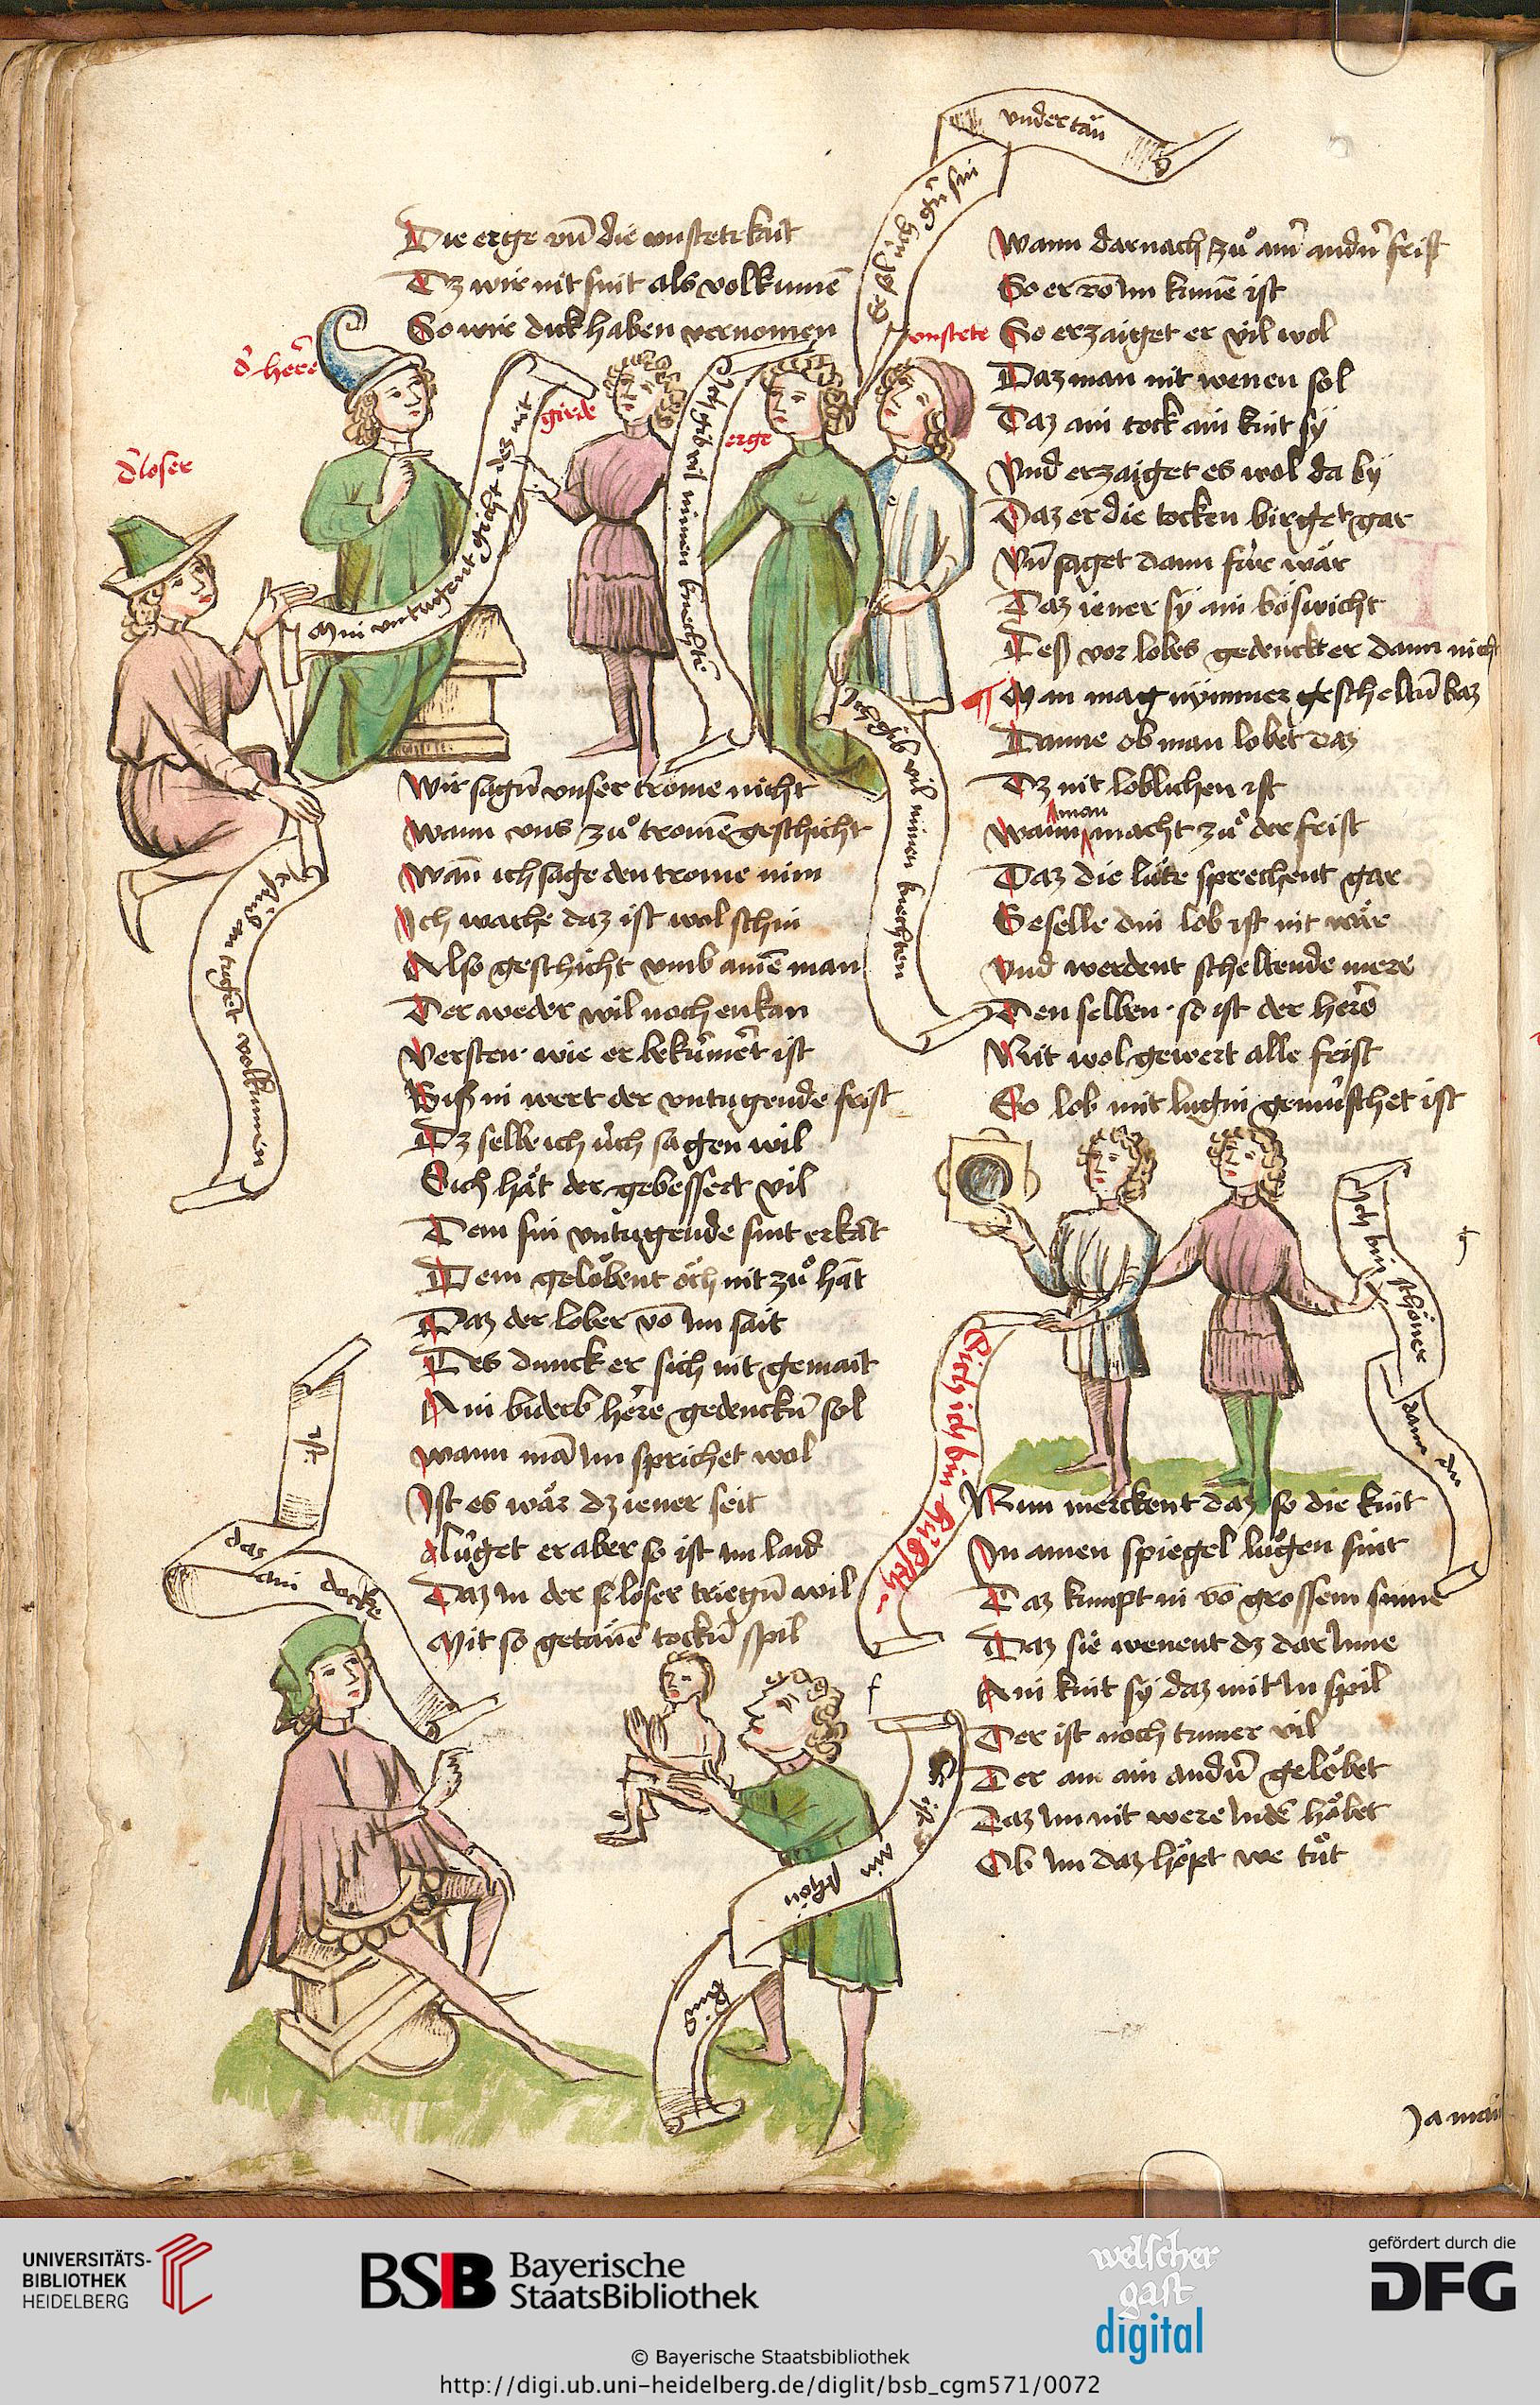 Die erge vn̄ die vnstetekait
Dz wir nit sint als volkumē
So wir dick haben vernomen
vndertān
sin
vnstete
d' herr̄e
girde
erge
d' loser
Min vntugent gicht des nit
Ich gib vil minen knechtē
Ich gib vil minen knechten
volkumen
Wir sagn̄ vnser trome nicht
Wann vns zů tromē geschicht
Wan̄ ich sage den trome min
Ich wache daz ist wol schin
Also geschicht vmb ainē man
Der weder wil noch enkan
Versten wie er bekūmērt ist
Biß in wert der vntugende frist
Dz selb ich ůch sagen wil
Sich hǎt der gebessert vil
Dem sin vntugende sint erkāt
Dem gelöbent öch nit zů hāt
Daz der lober vō im sait
Des dunck er sich nit gemait
Ain biderb herre gedenckn̄ sol
Wann mā im sprichet wol
Ist es wǎr dz iener seit
Lůget er aber so ist im laid
Daz in der loser triegn̄ wil
Mit so getānē tockn̄ spil
das
ist
ain docke
ain
schön
kind
Wann darnach zů ainr̄ andr̄ frist
So er vō im kumē ist
So erzaiget er vil wol
Daz man nit wenen sol
Daz ain tock ain kint sÿ
Vnd erzaiget es wol da bÿ
Daz er die tocken birget gar
Vn̄ saget dann fůr wǎr
Daz iener sÿ ain böswicht
Deß vor lobes gedenckt er dann nicht
Man mag nÿmmer geschelten̄ baz
Danne ob man lobet daz
Dz nit loblichen ist
man
Wann macht zů der frist
Daz die lůte sprechent gar
Geselle din lob ist nit wǎr
Vnd werdent scheltende mere
Den selben. so ist der herē
Nit wol gewert alle frist
So lob mit lugin gemůschet ist
Sich ich bin hübsch
Ich bin schöner
dann du
Nun merckent daz so die kint
In ainen spiegel lůgen sint
Daz kumpt in vō grossem sinne
Daz sie wenent dz dar inne
Ain kint sÿ daz mit in spil
Der ist noch tumer vil
Der ain ain andn̄ gelöbet
Daz im nit were inde höbet
Ob im daz höpt we tůt
Ja main
UNIVERSITÄTS-
BIBLIOTHEK
HEIDELBERG
BSB Bayerische
StaatsBibliothek
welscher
gast
digital
gefördert durch die
DFG
© Bayerische Staatsbibliothek
http://digi.ub.uni-heidelberg.de/diglit/bsb_cgm571/0072